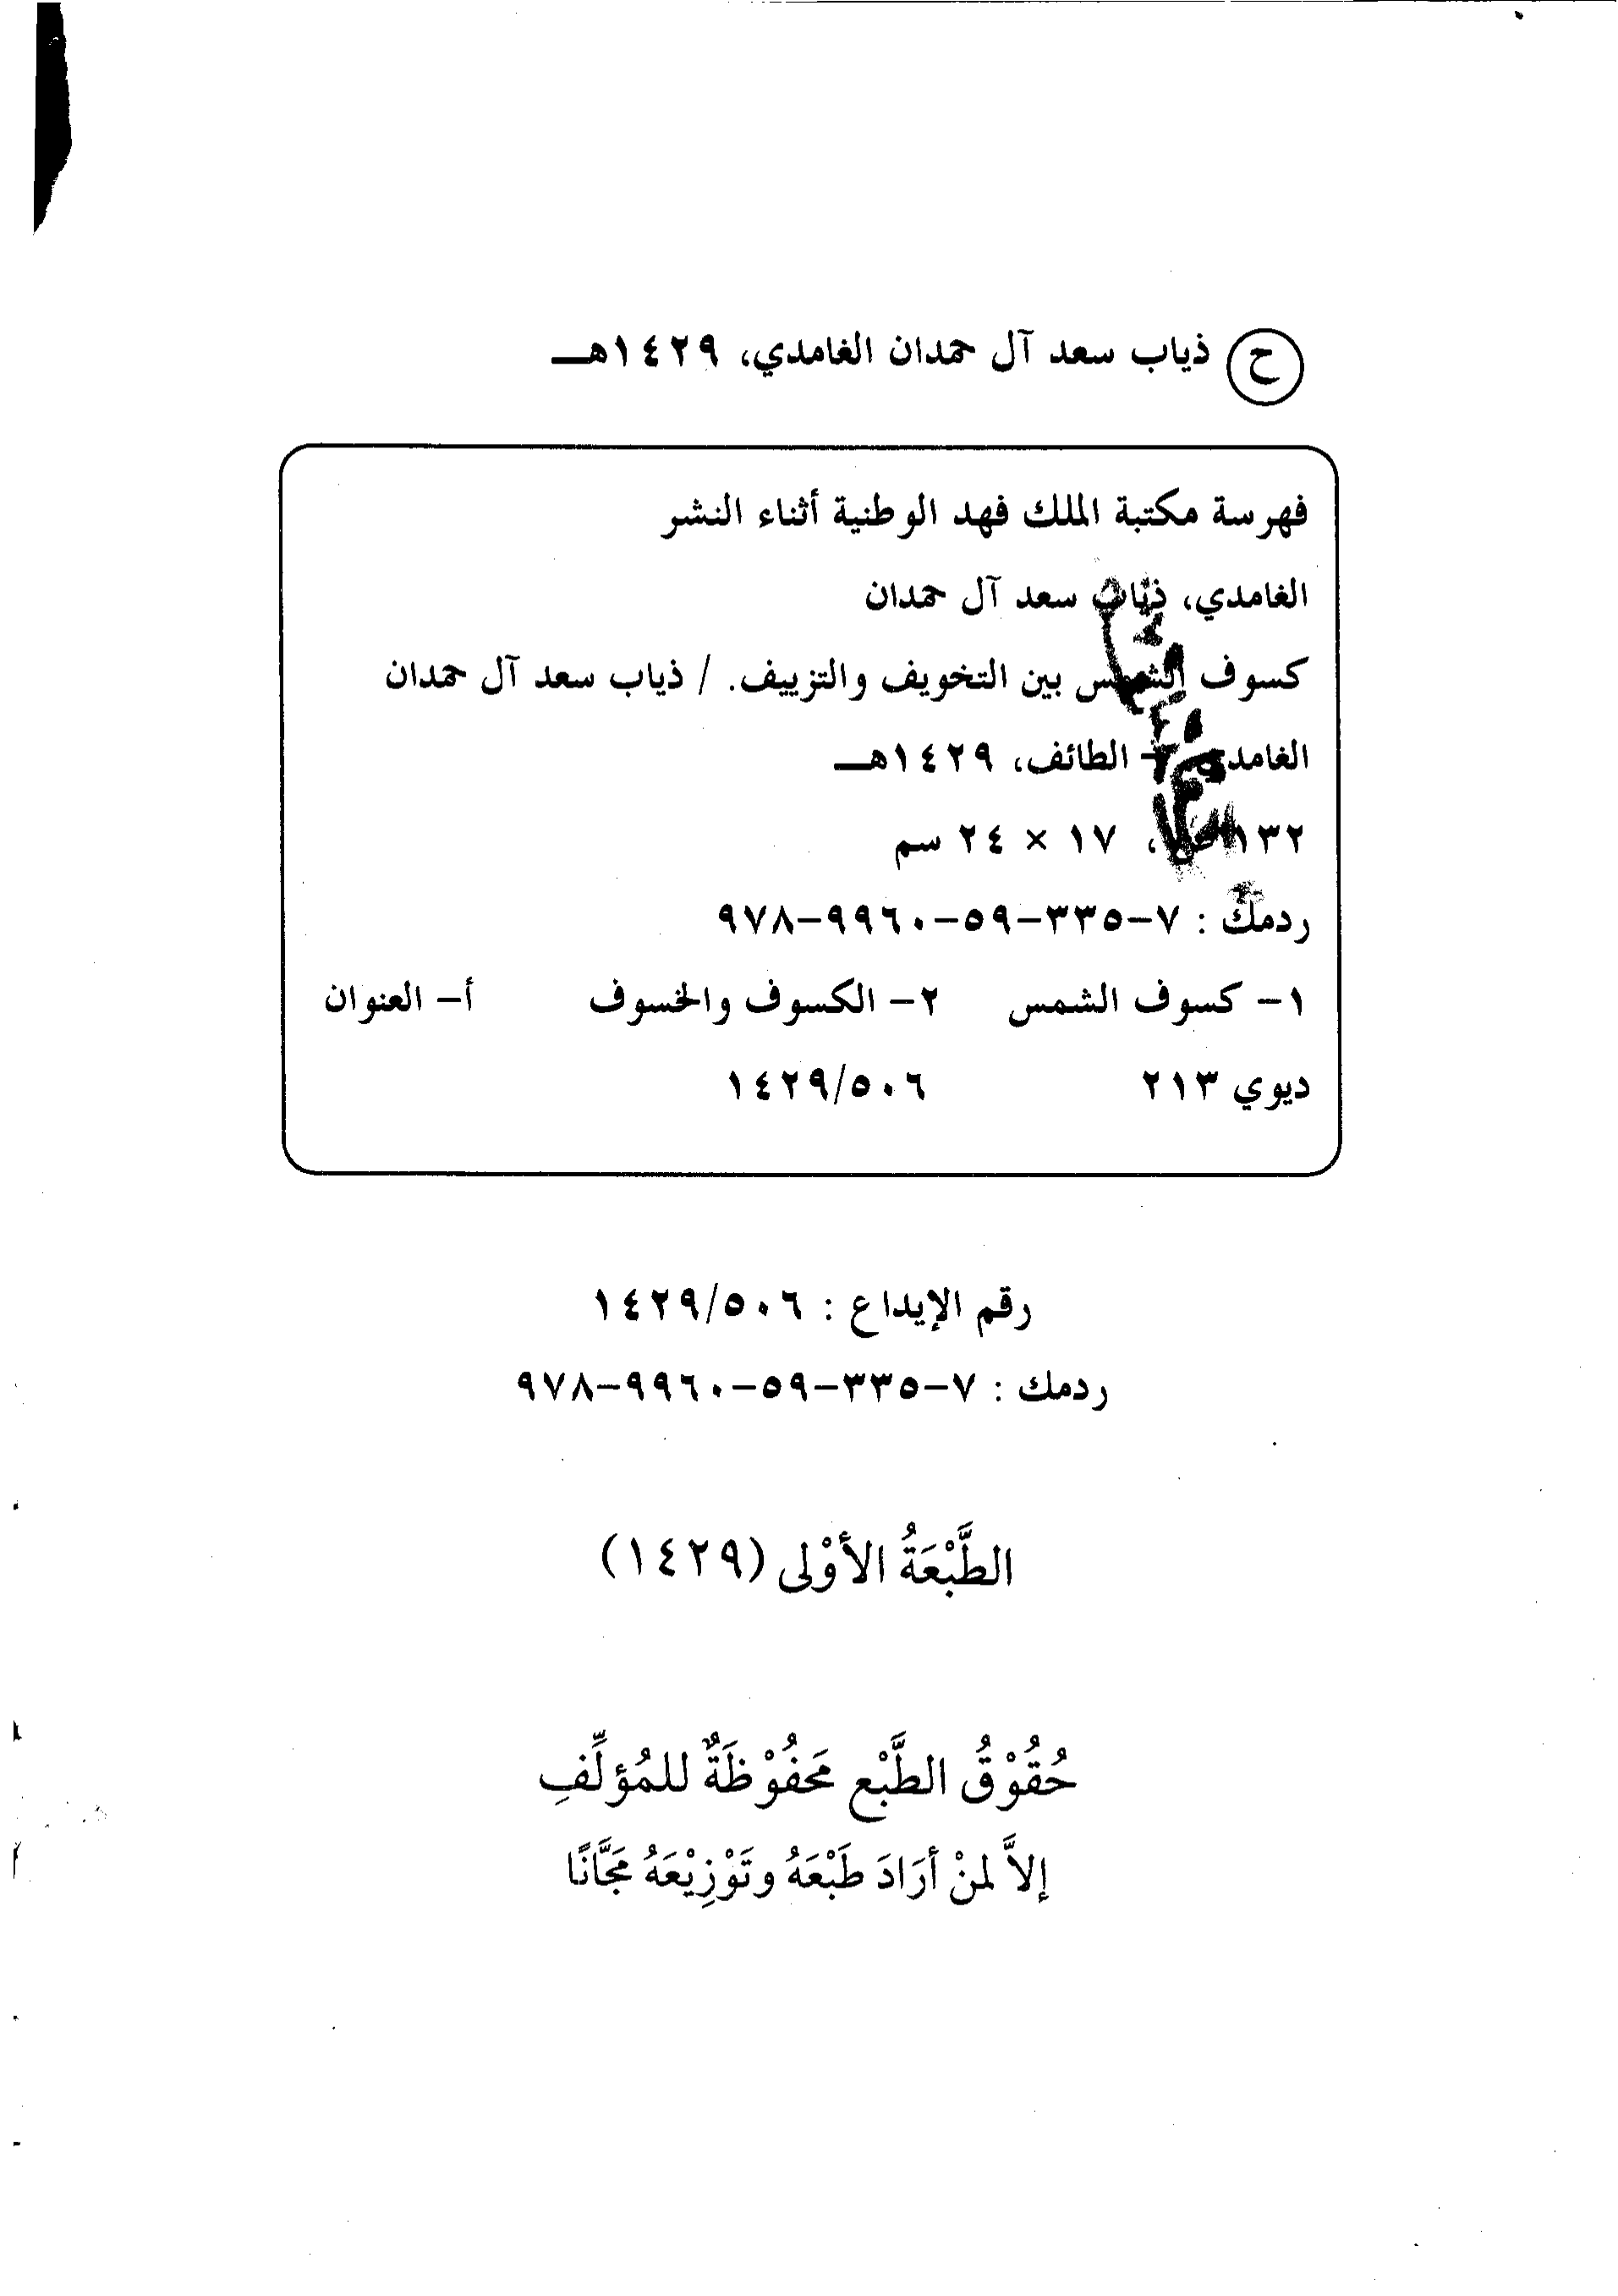 ح ذياب سعد آل حمدان الغامدي، ١٤٢٩هـ
فهرسة مكتبة الملك فهد الوطنية أثناء النشر
الغامدي، ذياب سعد آل حمدان
كسوف الشمس بين التخويف والتزييف. / ذياب سعد آل حمدان
الغامدي - الطائف، ١٤٢٩هـ
١٣٢ ، ١٧ × ٢٤ سم
ردمك : ٧-٣٣٥-٥٩-٩٩٦٠-٩٧٨
١- كسوف الشمس ٢- الكسوف والخسوف أ- العنوان
ديوي ٢١٣ ١٤٢٩/٥٠٦
رقم الإيداع : ١٤٢٩/٥٠٦
ردمك : ٧-٣٣٥-٥٩-٩٩٦٠-٩٧٨
الطَّبْعَةُ الأُوْلى (١٤٢٩)
حُقُوْقُ الطَّبْعِ مَحفُوْظَةٌ للمُؤلِّفِ
إلاَّ لمنْ أرَادَ طَبْعَهُ وتَوْزِيْعَهُ مَجَّانًا